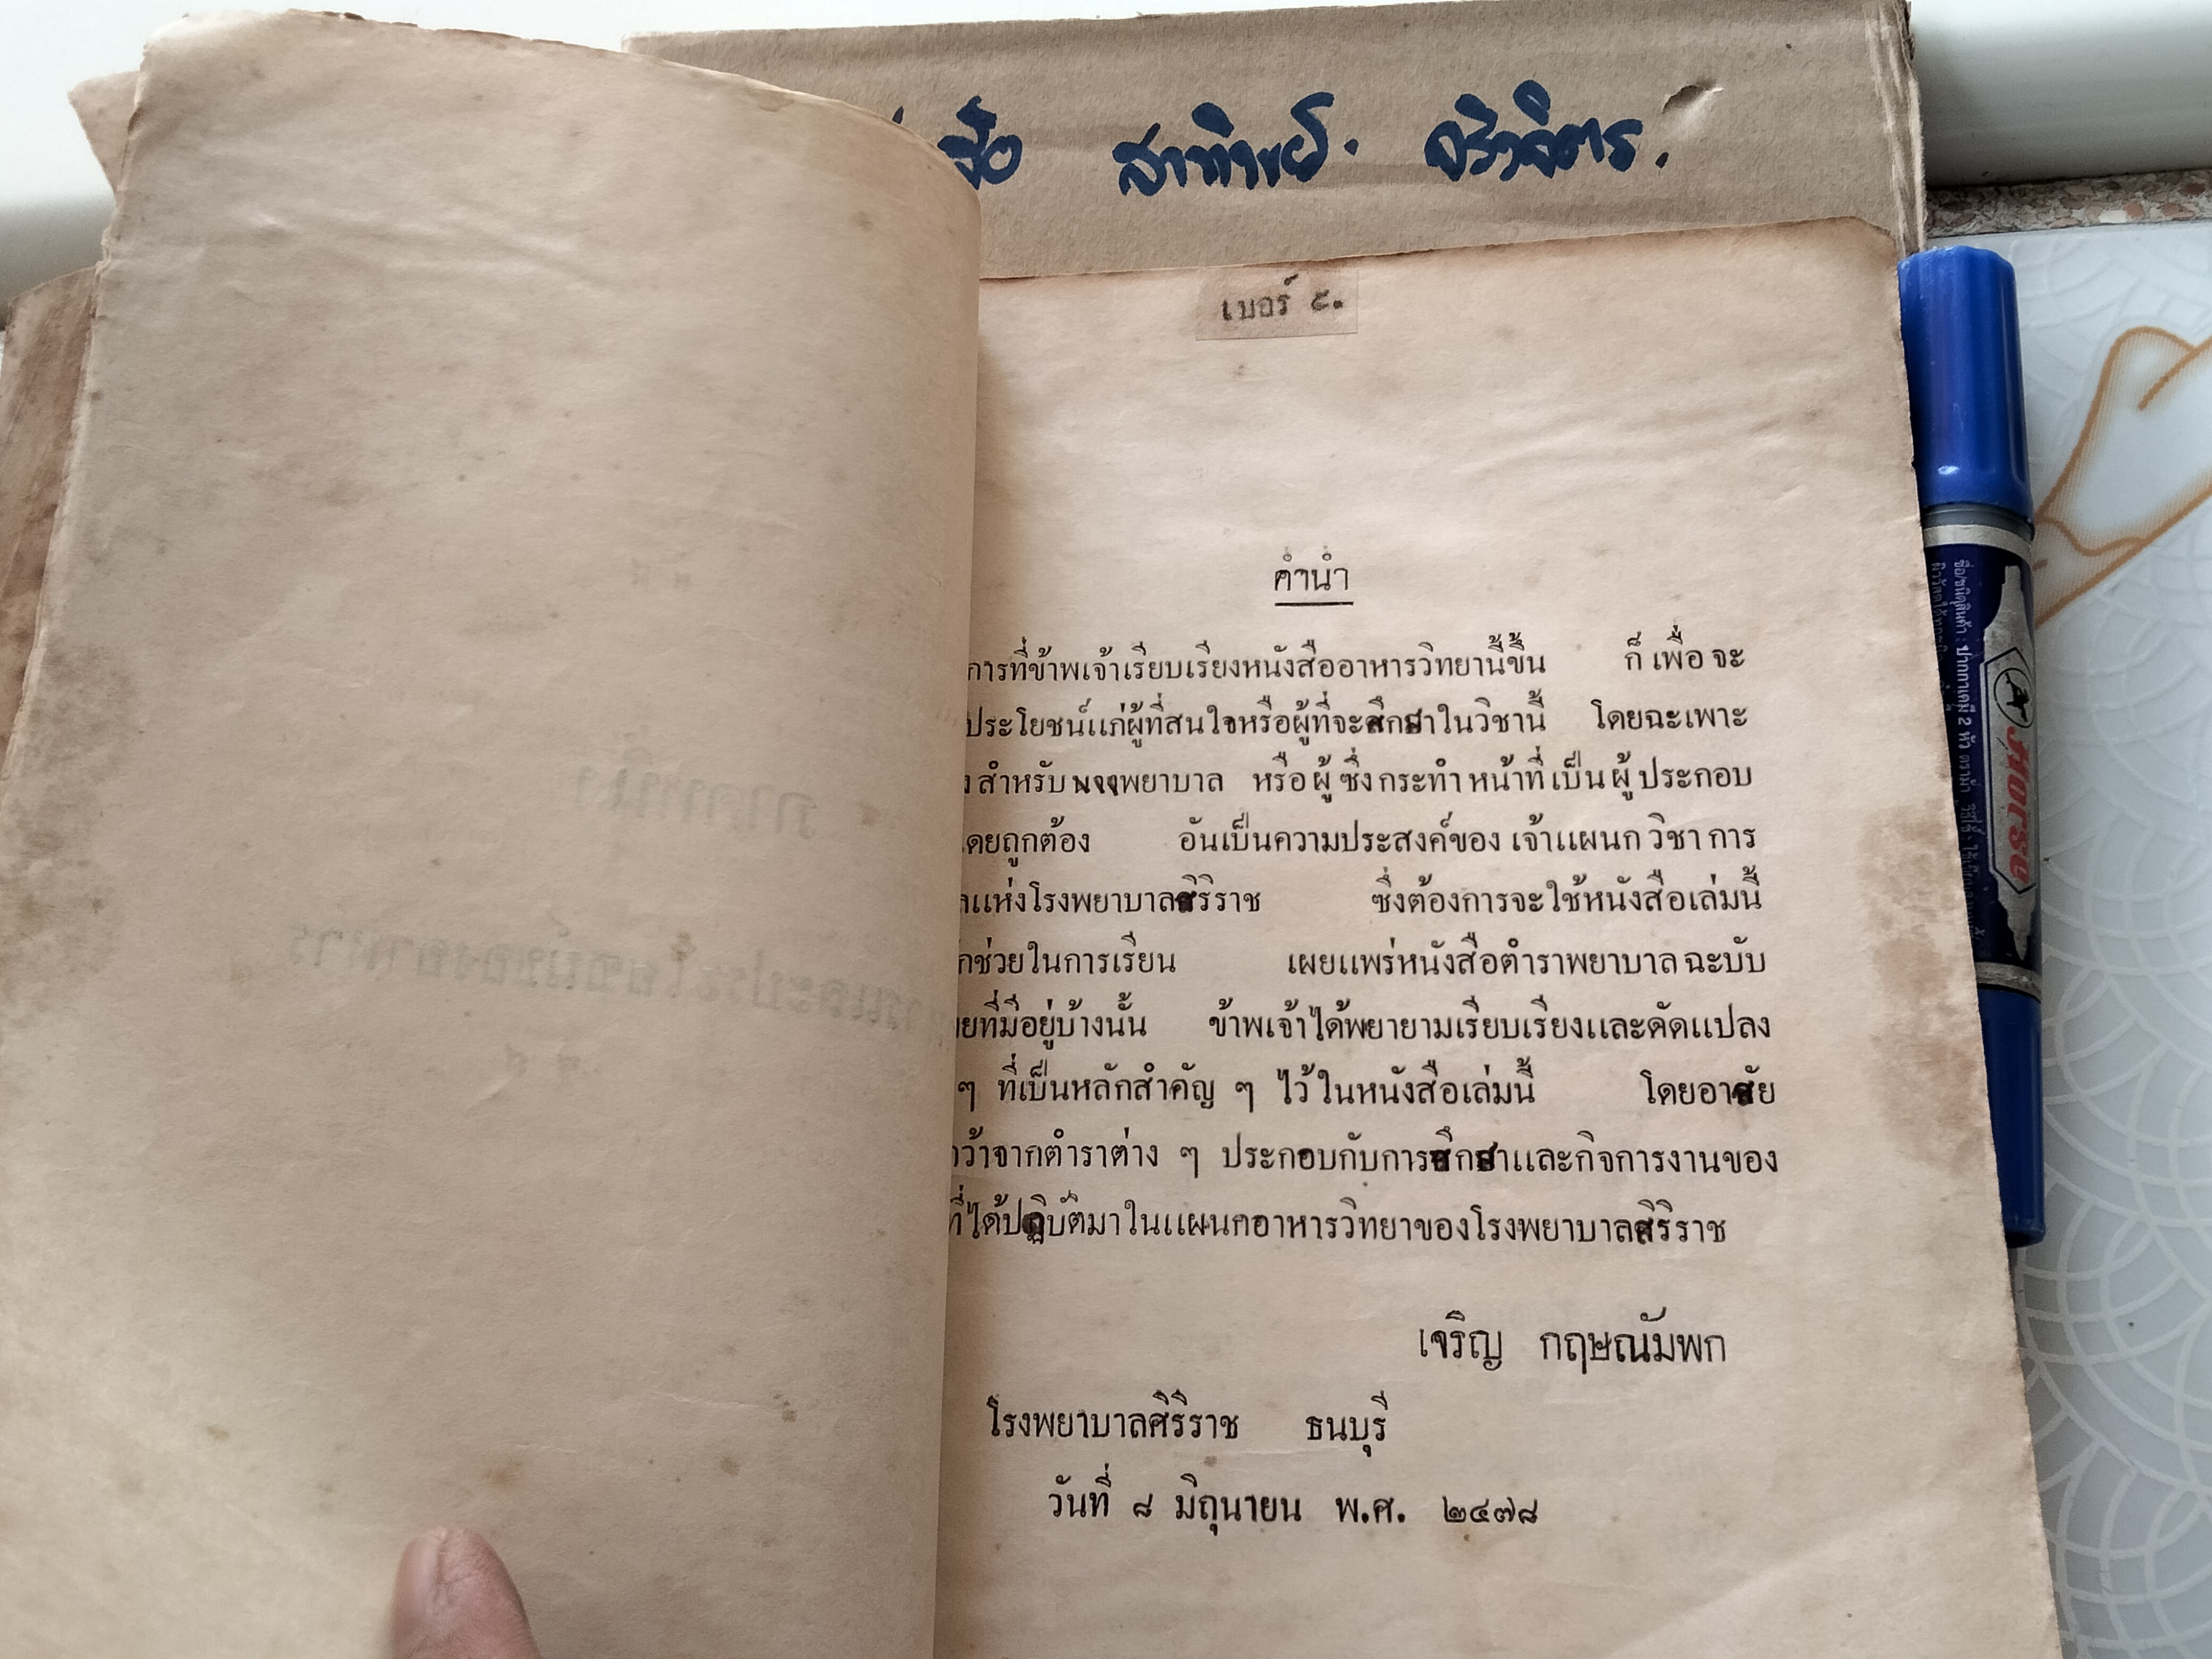 เบอร์ ๔.
คำนำ
การที่ข้าพเจ้าเรียบเรียงหนังสืออาหารวิทยานี้ขึ้น ก็ เพื่อ จะ
ประโยชน์แก่ผู้ที่สนใจหรือผู้ที่จะศึกษาในวิชานี้ โดยฉะเพาะ
สำหรับนางพยาบาล หรือ ผู้ ซึ่ง กระทำ หน้าที่ เป็น ผู้ ประกอบ
ถูกต้อง อันเป็นความประสงค์ของ เจ้าแผนก วิชา การ
แห่งโรงพยาบาลศิริราช ซึ่งต้องการจะใช้หนังสือเล่มนี้
ช่วยในการเรียน เผยแพร่หนังสือตำราพยาบาล ฉะบับ
ที่มีอยู่บ้างนั้น ข้าพเจ้าได้พยายามเรียบเรียงและดัดแปลง
ๆ ที่เป็นหลักสำคัญ ๆ ไว้ ในหนังสือเล่มนี้ โดยอาศัย
จากตำราต่าง ๆ ประกอบกับการศึกษาและกิจการงานของ
ที่ได้ปฏิบัติมาในแผนกอาหารวิทยาของโรงพยาบาลศิริราช
เจริญ กฤษณัมพก
โรงพยาบาลศิริราช ธนบุรี
วันที่ ๘ มิถุนายน พ.ศ. ๒๔๗๘
Horse